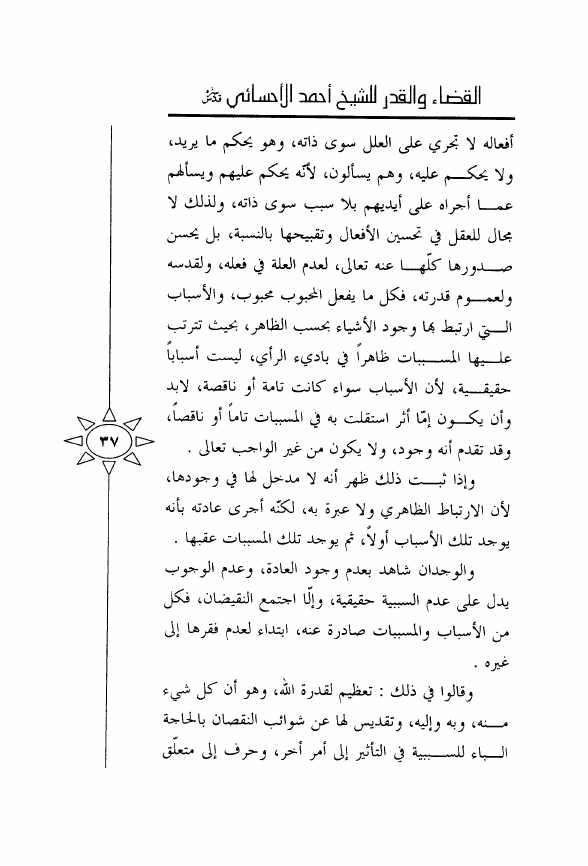 القضاء والقدر للشيخ أحمد الأحسائي
أفعاله لا تجري على العلل سوى ذاته، وهو يحكم ما يريد،
ولا يحكـــم عليه، وهم يسألون، لأنّه يحكم عليهم ويسألهم
عمـــا أجراه على أيديهم بلا سبب سوى ذاته، ولذلك لا
مجال للعقل في تحسين الأفعال وتقبيحها بالنسبة، بل يحسن
صـــدورها كلّهـــا عنه تعالى، لعدم العلة في فعله، ولقدسه
ولعمـــوم قدرته، فكل ما يفعل المحبوب محبوب، والأسباب
الـــتي ارتبط بها وجود الأشياء بحسب الظاهر، بحيث تترتب
علـــيها المســـببات ظاهراً في باديء الرأي، ليست أسباباً
حقيقـــية، لأن الأسباب سواء كانت تامة أو ناقصة، لابد
وأن يكـــون إمّا أثر استقلت به في المسببات تاماً أو ناقصاً،
وقد تقدم أنه وجود، ولا يكون من غير الواجب تعالى .
وإذا ثبـــت ذلك ظهر أنه لا مدخل لها في وجودها،
لأن الارتباط الظاهري ولا عبرة به، لكنّه أجرى عادته بأنه
يوجد تلك الأسباب أولاً، ثم يوجد تلك المسببات عقبها .
والوجدان شاهد بعدم وجود العادة، وعدم الوجوب
يدل على عدم السببية حقيقية، وإلّا اجتمع النقيضان، فكل
من الأسباب والمسببات صادرة عنه، ابتداء لعدم فقرها إلى
غيره .
وقالوا في ذلك : تعظيم لقدرة الله، وهو أن كل شيء
منـــه، وبه وإليه، وتقديس لها عن شوائب النقصان بالحاجة
البـــاء للســـببية في التأثير إلى أمر أخر، وحرف إلى متعلّق
٣٧